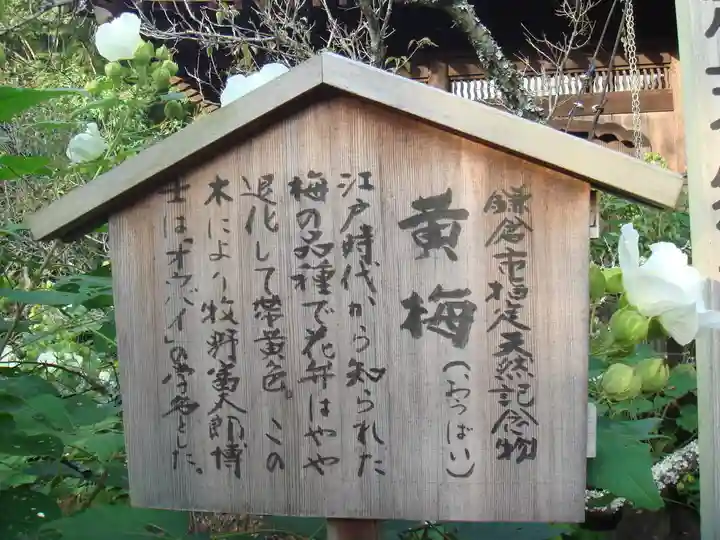 鎌倉市指定天然記念物
黄梅(おうばい)
江戸時代から知られた
梅の品種で花弁はやや
退化して帯黄色。この
木により牧野富太郎博
士は「オウバイ」の学名とした。